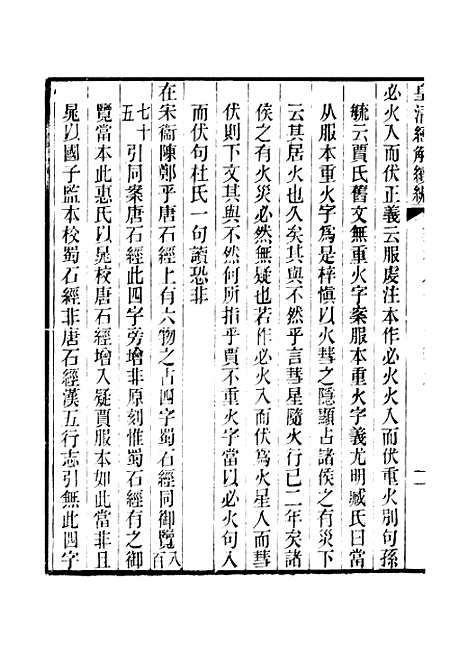 皇清經解續編
必火入而伏正義云服虔注本作必火火入而伏重火別句孫
毓云賈氏舊文無重火字案服本重火字義尤明臧氏曰當
从服本重火字為是梓愼以火彗之隱顯占諸侯之有災下
云其居火也久矣其與不然乎言彗星隨火行已二年矣諸
侯之有火災必然無疑也若作必火入而伏為火星入而彗
伏則下文其與不然何所指乎賈不重火字當以必火句入
而伏句杜氏一句讀恐非
在宋衞陳鄭乎唐石經上有六物之占四字蜀石經同御覽八百
七十五引同案唐石經此四字旁增非原刻惟蜀石經有之御
覽當本此惠氏以晁校唐石經增入疑賈服本如此當非且
晁以國子監本校蜀石經非唐石經漢五行志引無此四字